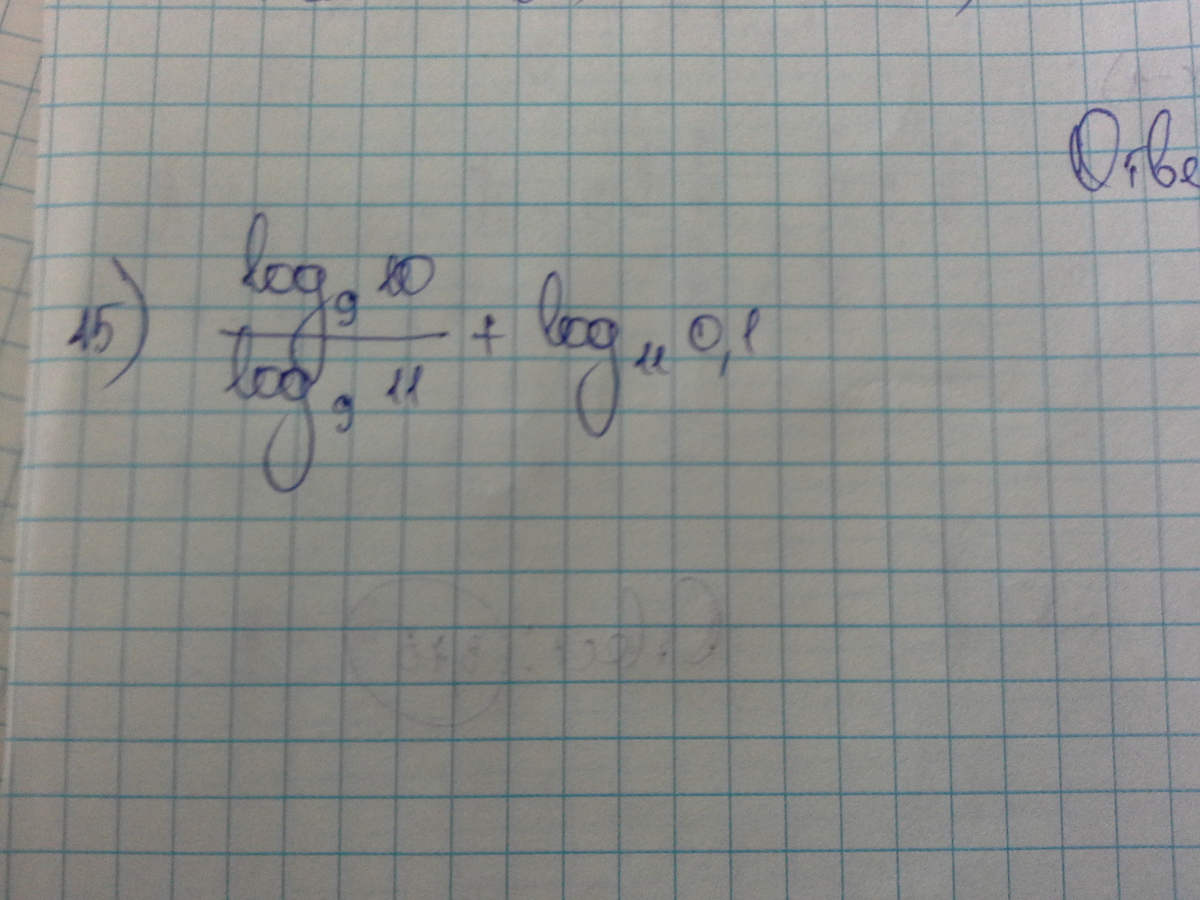 Отве
15) log₉ 10 / log₉ 11 + log₁₁ 0,1